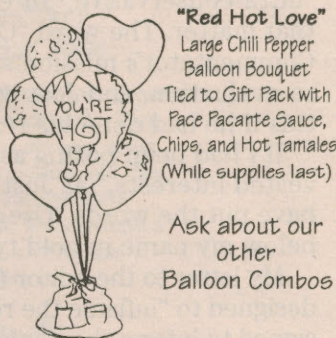 "Red Hot Love"
Large Chili Pepper
Balloon Bouquet
Tied to Gift Pack with
Pace Pacante Sauce,
Chips, and Hot Tamales
(While supplies last)
YOU'RE
HOT
Ask about our
other
Balloon Combos